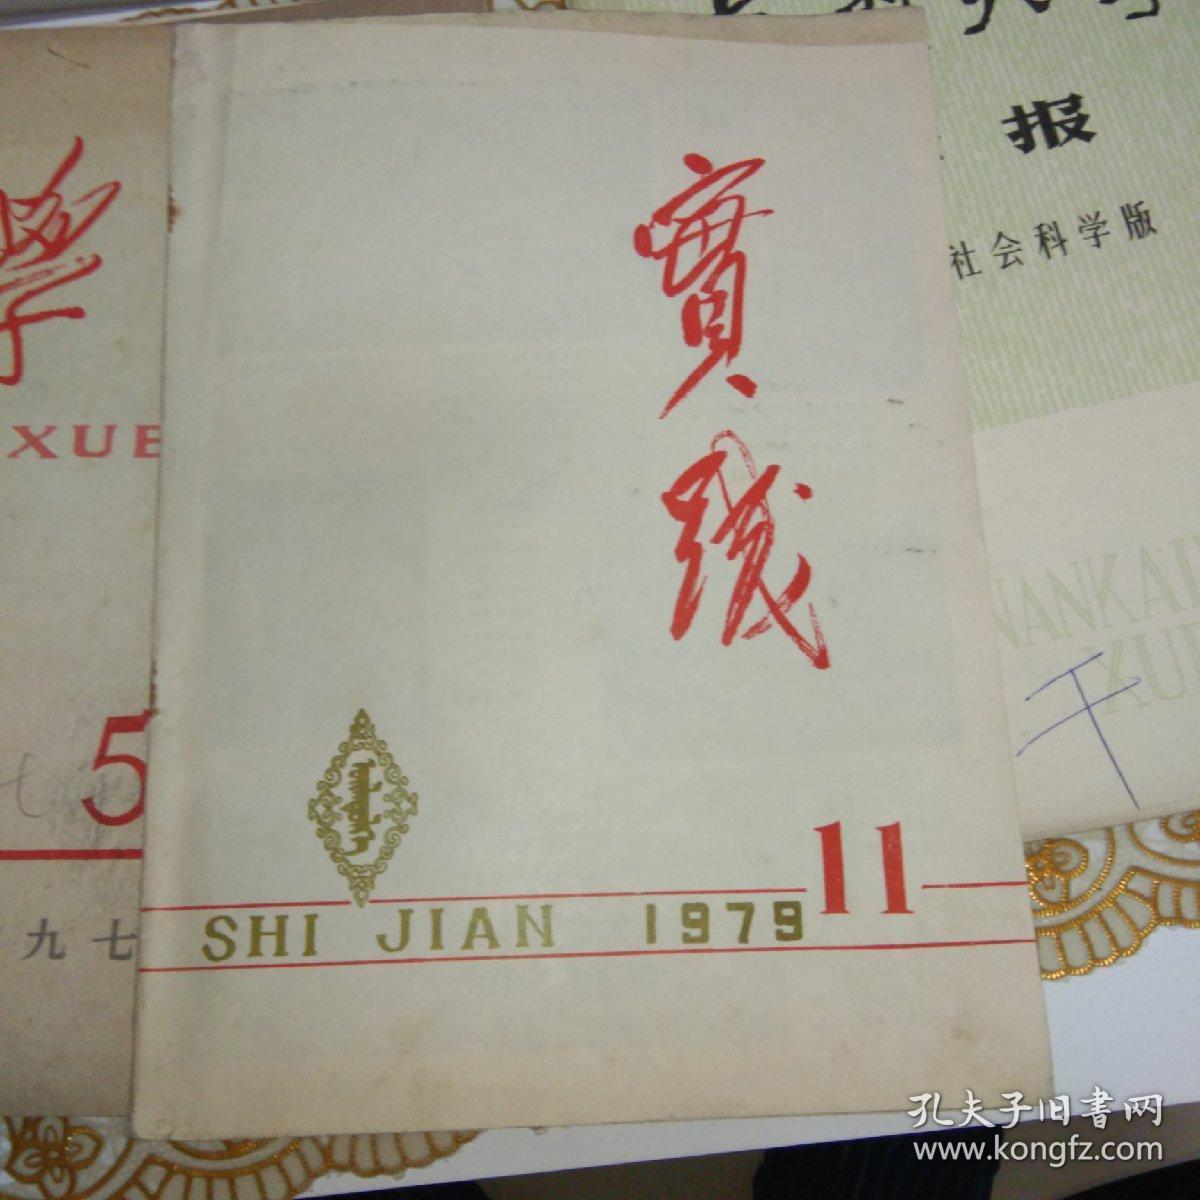 學
XUE
5
九七
實践
SHI JIAN 1979 11
报
社会科学版
NANKAI
XUE
千
孔夫子旧书网
www.kongfz.com